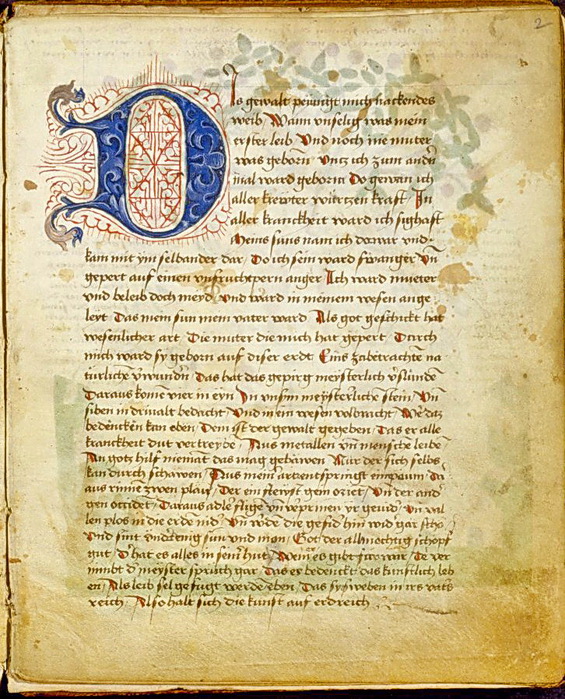 2
Das gewalt peinigt mich nackendes
weib Wann unselig was mein
erster leib Und noch nie muter
was geborn Untz ich zum andn
mal ward geborn Do gewan ich
aller krewter wurtzen kraft In
aller kranckheit ward ich sighaft
Meins suns nam ich do war vnd
kam mit ym selbander dar Do ich sein ward swanger Vn
gepert auf einen vnfruchtpern anger Ich ward mueter
vnd beleib doch meyd Vnd ward in meinem wesen ange
leyt Das mein sun mein vater ward Als got geschickt hat
wesenlicher art Die muter die mich hat gepert Durch
mich ward sy geborn auf diser erdt Eins zabetrachte na
türliche Das hat das gepirg meysterlich
Daraus kome vier in eyn In vnsm meysterliche stein Vn
siben in drivalt bedacht Vnd in ein wesen volbracht
bedencken kan eben Dem ist der gewalt gegeben Das er alle
kranckheit dut vertreybe Aus metallen vn mensche leibe
An gots hilf niemat das mag gebarwen Nur der sich selbs
kan durch schawen Aus mein entspringt ein pawm Da
aus rinne zwen Der ein gein oriet Vn der and
gen occidet Daraus adler flige vn yr geuid Vn val
len plos in die erde nid Vn
Vnd sint vndtenig sun vnd mon Got der almechtig schopf
gut es alles in seinr hut
nimbt d meyster spruch gar Das er bedenckt das kunstlich leb
en Als leib sel gefugt werden eben Das sy sweben in irs vats
reich Also halt sich die kunst auf erdreich